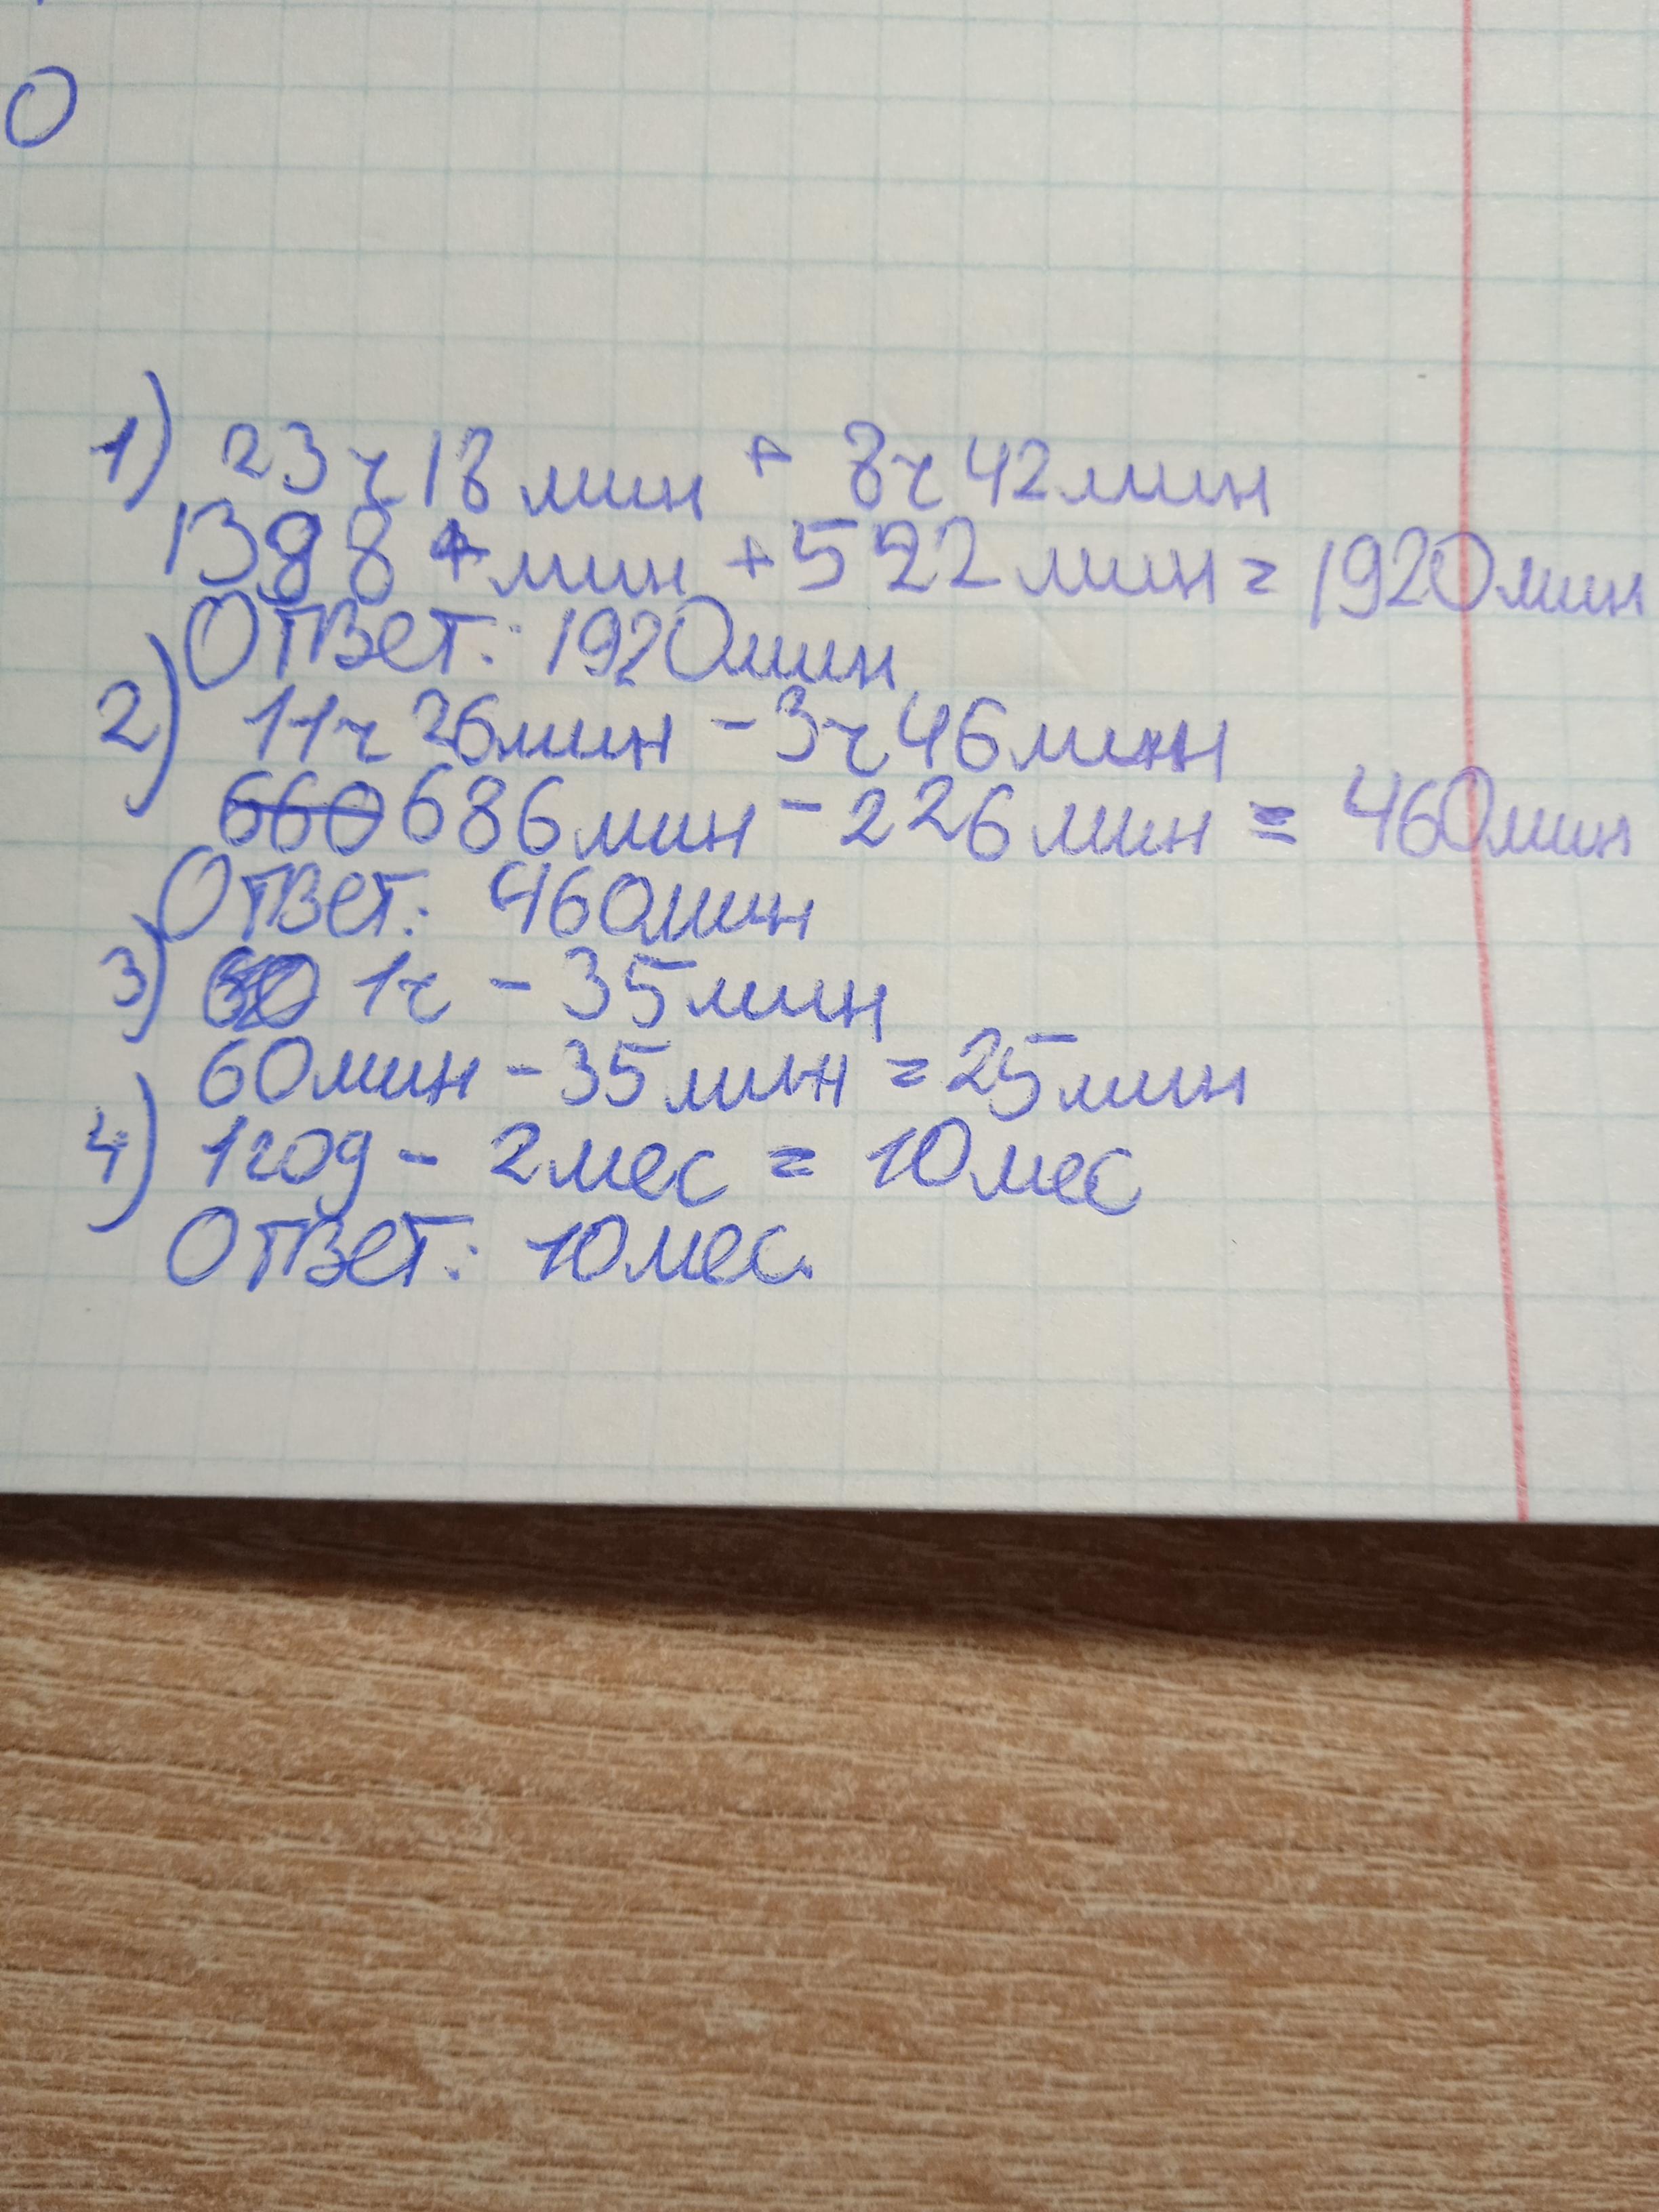 0
1) 23ч 18 мин + 8ч 42мин
1398 мин + 522 мин = 1920мин
Ответ: 1920мин
2) 11ч 26мин - 3ч 46мин
660 686мин - 226мин = 460мин
Ответ: 460мин
3) 1ч - 35мин
60мин - 35мин = 25мин
4) 1год - 2мес = 10мес
Ответ: 10мес.